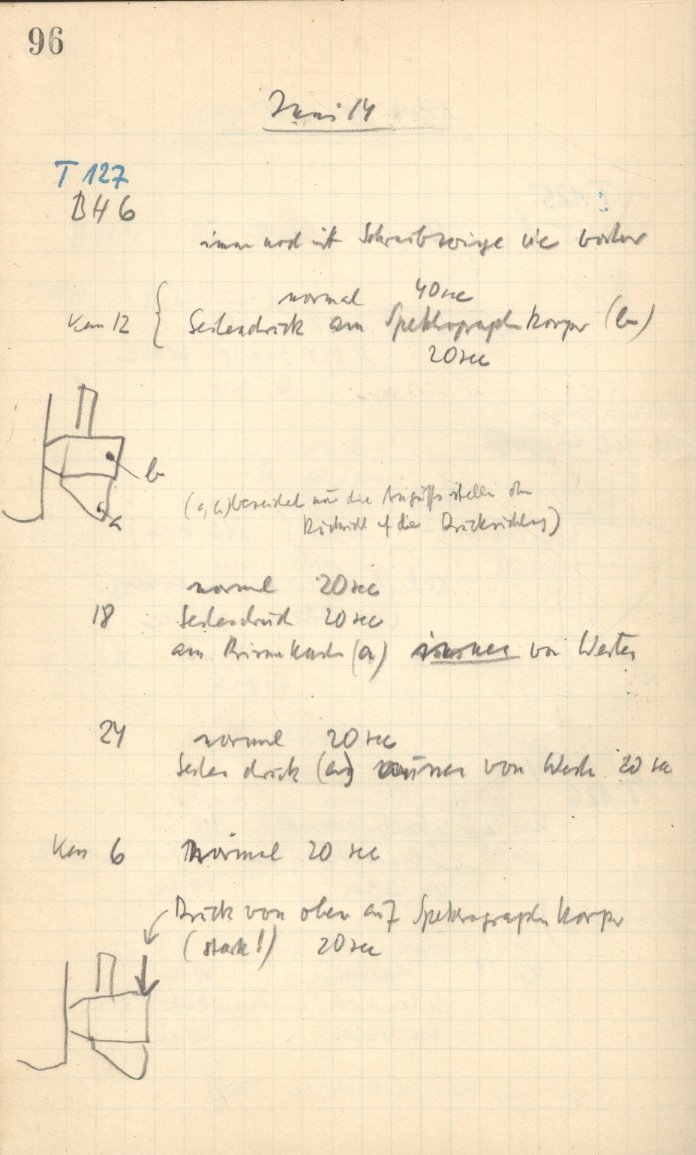 96
Juni 14
T 127
BH 6
immer noch mit Schraubzwinge wie vorher
normal 40 sec
Kam 12 Seitendruck am Spektrographkorper (b)
20 sec
b
a
(a, b) bezeichnet nur die Angriffsstellen ohne
Rücksicht auf die Druckrichtung)
normal 20 sec
18 Seitendruck 20 sec
am Prismkasten (a) immer von Westen
24 normal 20 sec
Seitendruck (a) immer von Westen 20 sec
Kam 6 Normal 20 sec
Druck von oben auf Spektrographkorper
(stark!) 20 sec